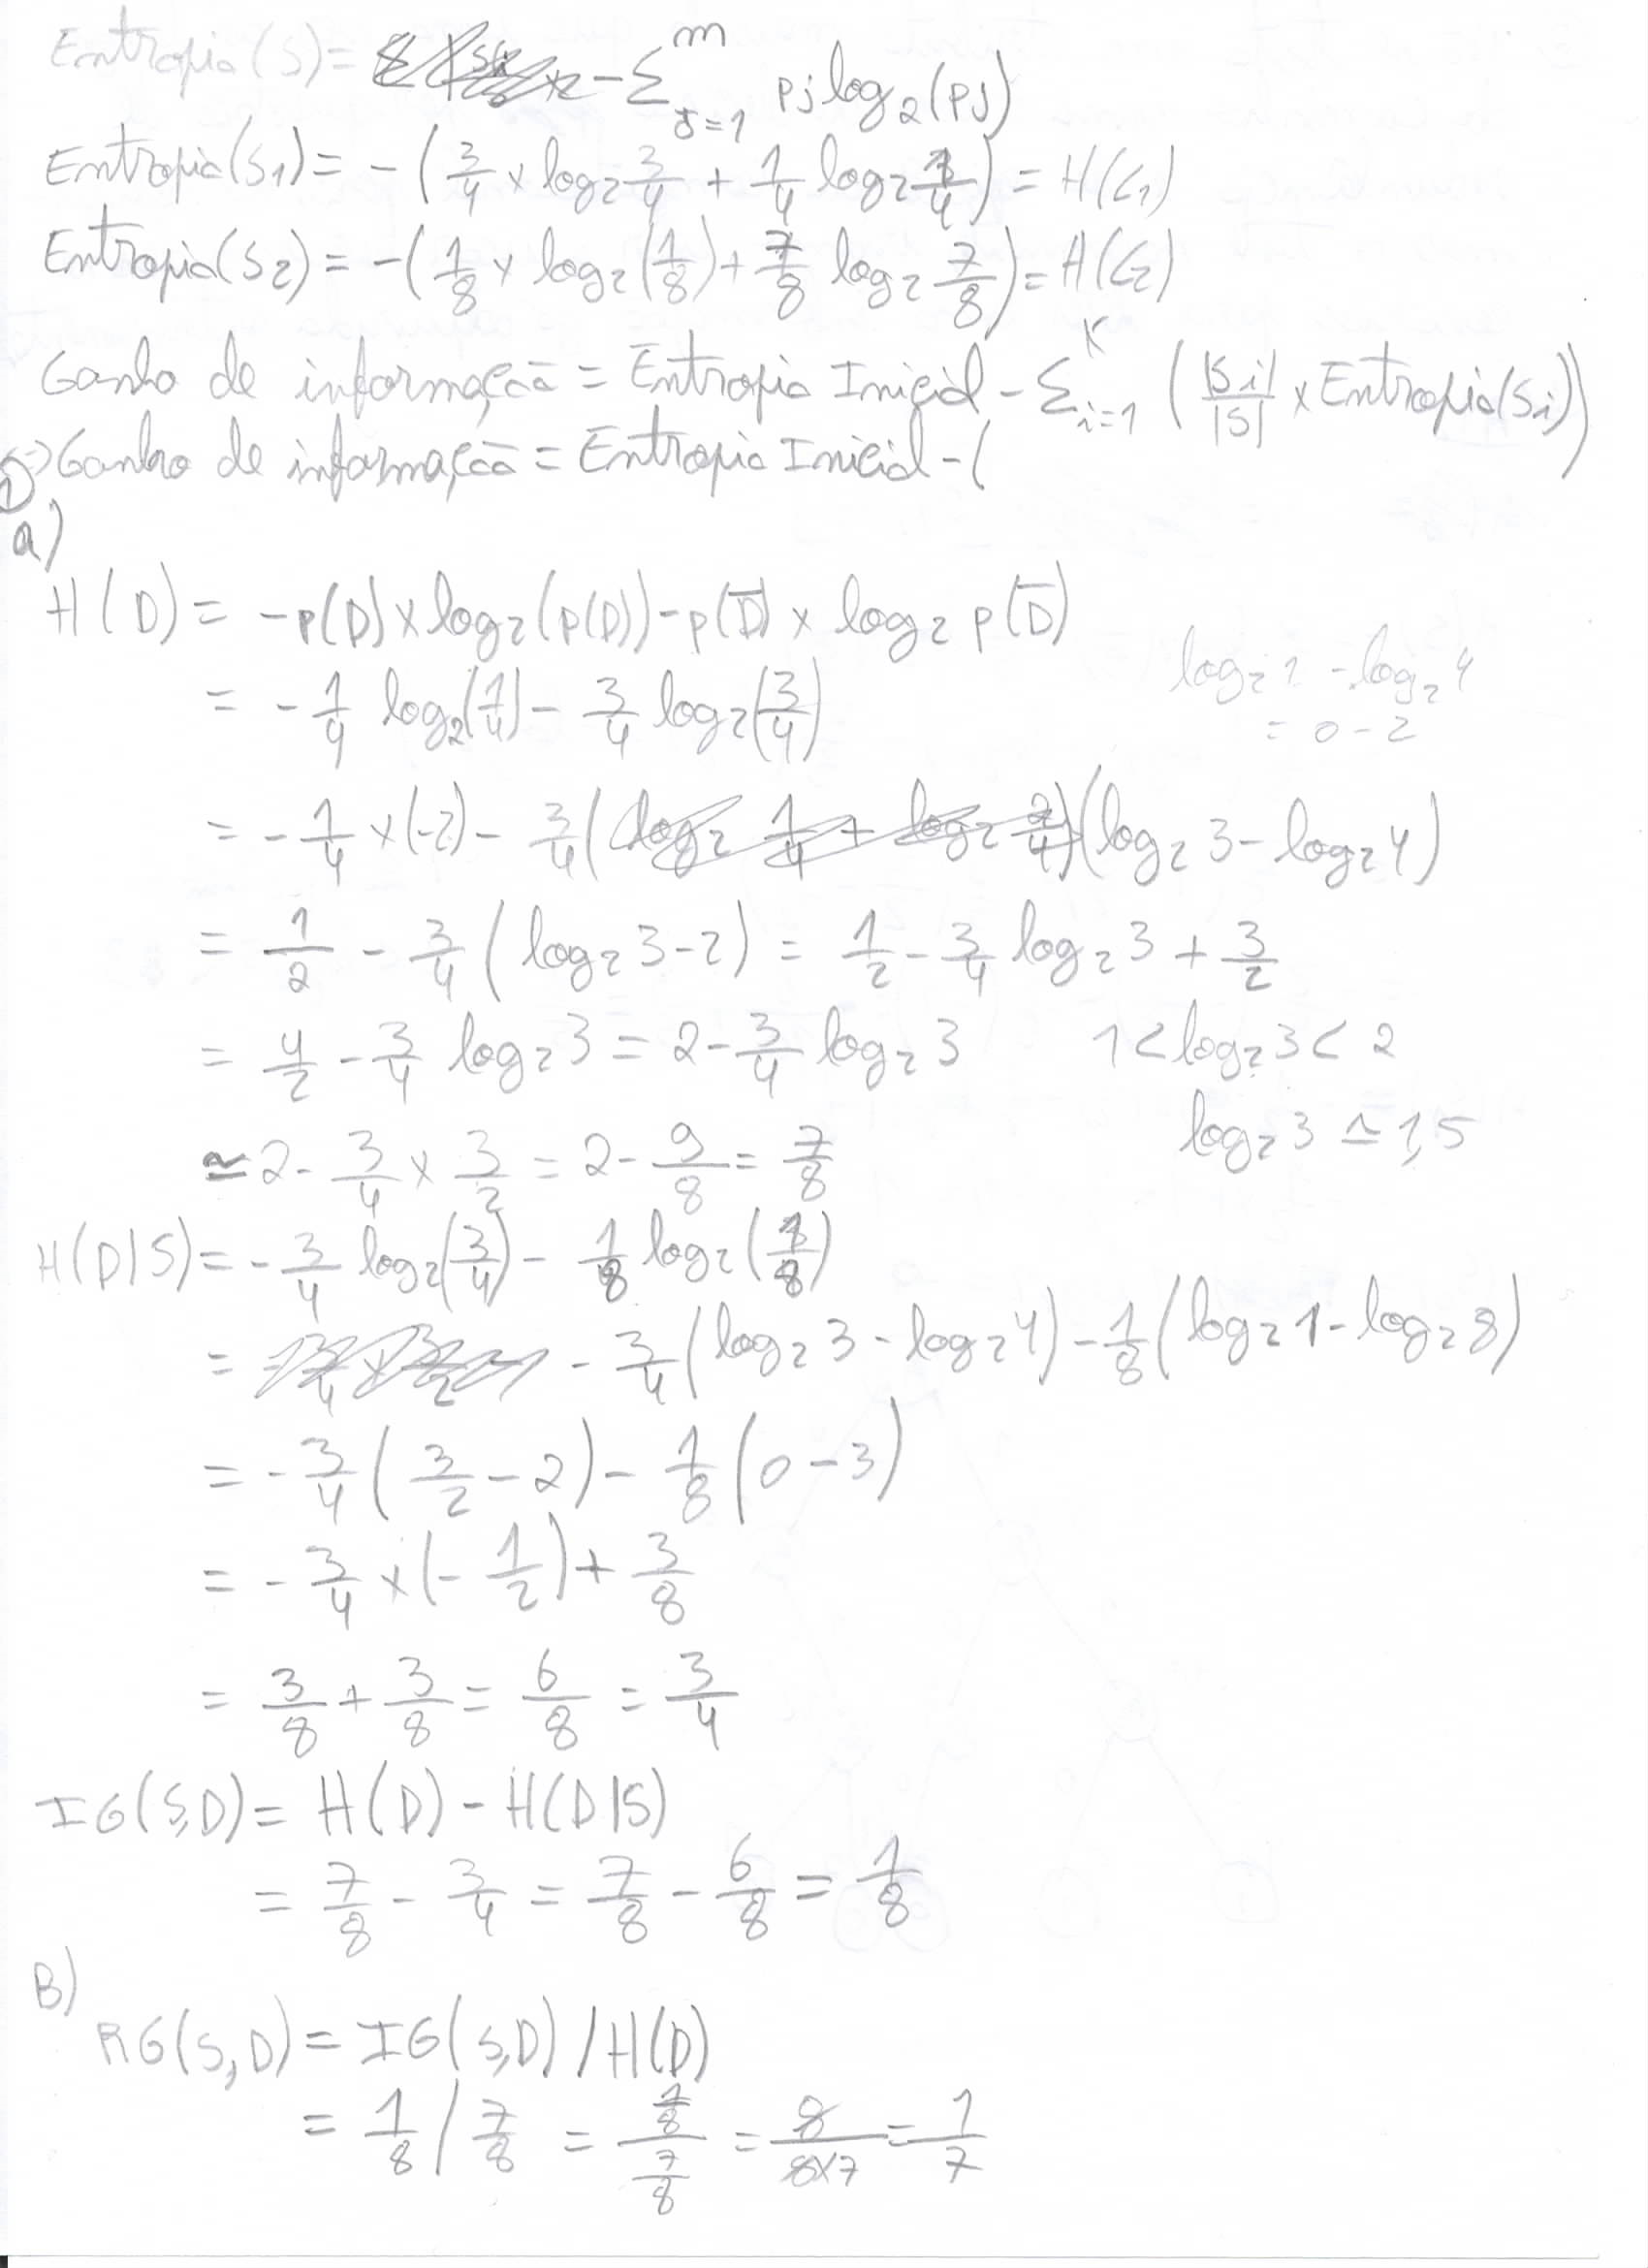 Entropia(S) = - Σ_{j=1}^{m} pj log₂(pj)
Entropia(S₁) = - (3/4 × log₂ 3/4 + 1/4 log₂ 1/4) = H(C₁)
Entropia(S₂) = -(1/8 × log₂(1/8) + 7/8 log₂ 7/8) = H(C₂)
Ganho de informação = Entropia Inicial - Σ_{i=1}^{K} (|Si|/|S| × Entropia(Si))
Ganho de informação = Entropia Inicial - (
1)
a)
H(D) = -p(D) × log₂(p(D)) - p(D̅) × log₂ p(D̅)
= - 1/4 log₂(1/4) - 3/4 log₂(3/4)
log₂ 1 - log₂ 4
= 0 - 2
= - 1/4 × (-2) - 3/4 (log₂ 3 - log₂ 4)
= 1/2 - 3/4 (log₂ 3 - 2) = 1/2 - 3/4 log₂ 3 + 3/2
= 4/2 - 3/4 log₂ 3 = 2 - 3/4 log₂ 3 1 < log₂ 3 < 2
log₂ 3 ≃ 1,5
≃ 2 - 3/4 × 3/2 = 2 - 9/8 = 7/8
H(D|S) = - 3/4 log₂(3/4) - 1/8 log₂(1/8)
= - 3/4 (log₂ 3 - log₂ 4) - 1/8 (log₂ 1 - log₂ 8)
= - 3/4 (3/2 - 2) - 1/8 (0 - 3)
= - 3/4 × (- 1/2) + 3/8
= 3/8 + 3/8 = 6/8 = 3/4
IG(S,D) = H(D) - H(D|S)
= 7/8 - 3/4 = 7/8 - 6/8 = 1/8
B)
RG(S,D) = IG(S,D) / H(D)
= 1/8 / 7/8 = (1/8)/(7/8) = 8/(8×7) = 1/7